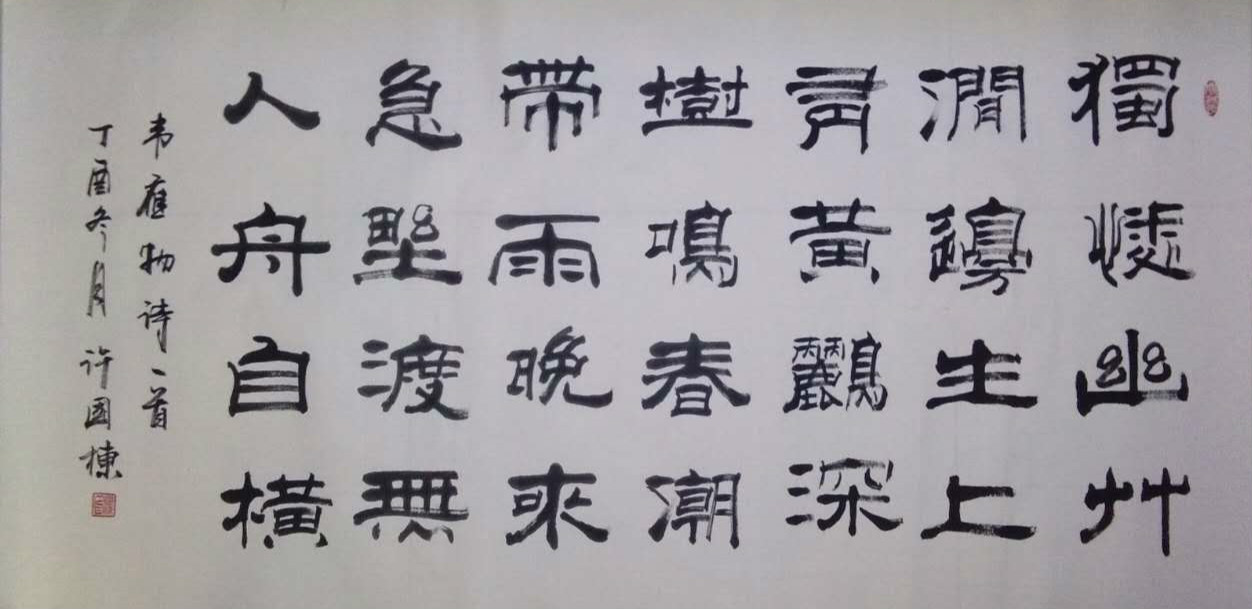 獨憐幽艸
澗邊生上
有黃鸝深
樹鳴春潮
帶雨晚來
急野渡無
人舟自橫
韦應物诗一首
丁酉冬月许国棟